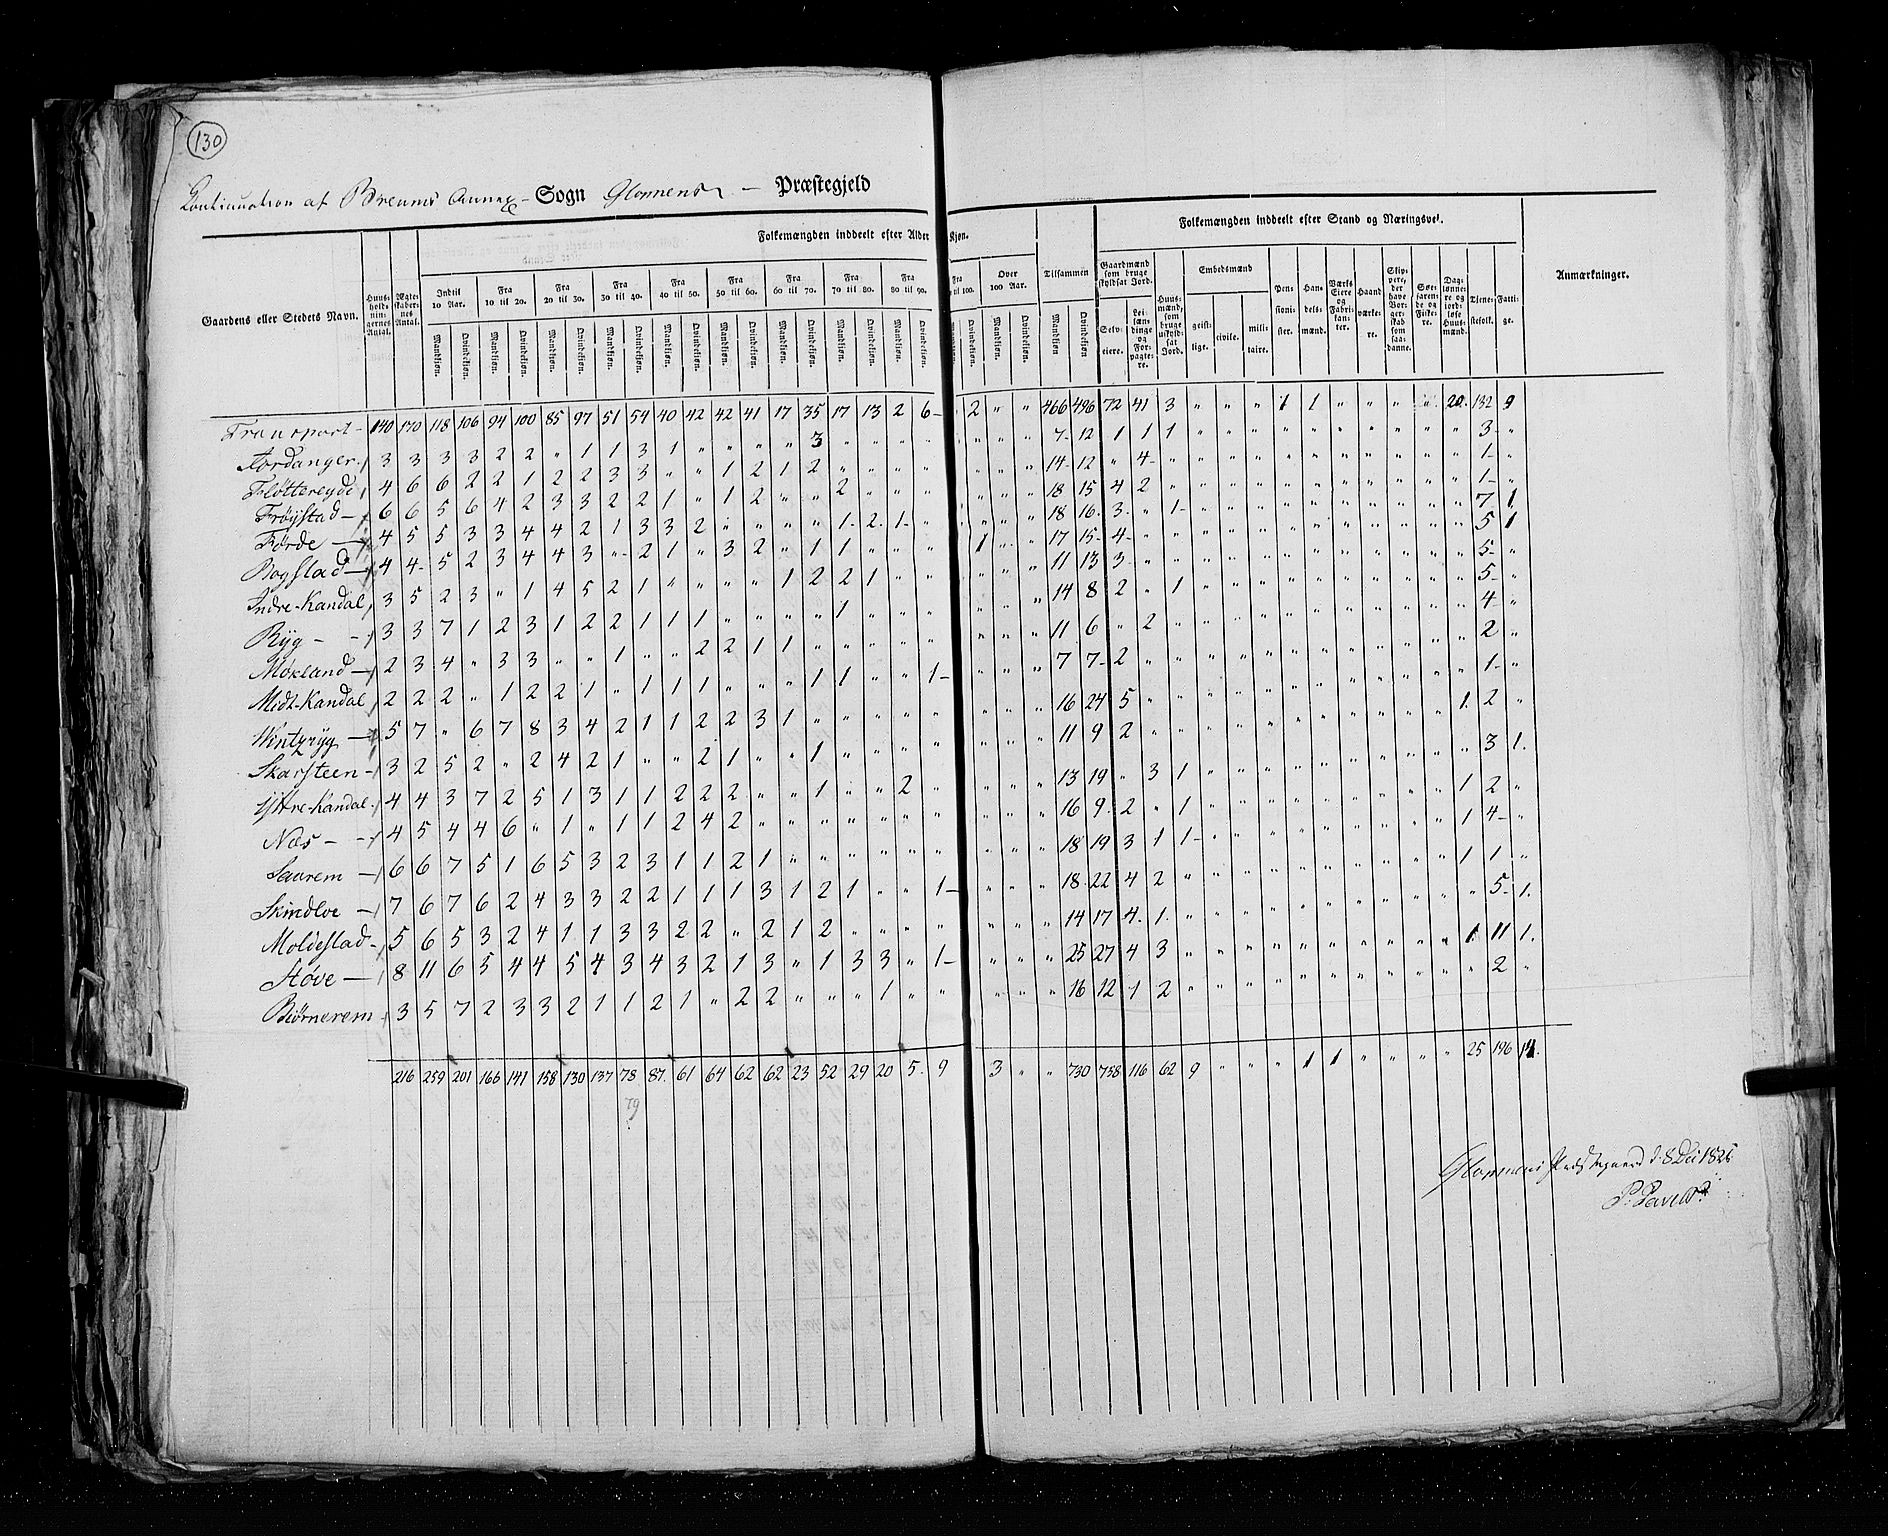 130
Continuation af Breums Annex - Sogn Gloppens - Præstegjeld
Folkemængden inddeelt efter Alder Kjøn.
Folkemængden inddeelt efter Stand og Næringsvei.
Gaardens eller Stedets Navn. Huus-holdnin-gernes Antal. Ægte-skaber-nes Antal. Indtil 10 Aar. Fra 10 til 20. Fra 20 til 30. Fra 30 til 40. Fra 40 til 50. Fra 50 til 60. Fra 60 til 70. Fra 70 til 80. Fra 80 til 90. Fra til 100. Over 100 Aar. Tilsammen
Mandkjøn. Qvindekjøn.
Gaardmænd som bruge skyldsat Jord. Selv-eiere. Lei-lændinge og For-pagte-re. Huus-mænd, som bruge uskyld-sat Jord. Embedsmænd geist-lige. civile. mili-taire. Pen-sioni-ster. Han-dels-mænd. Værks Eiere og Fabri-kan-ter. Haand værke-re. Skip-pere, der have Bor-ger-skab som saa-danne. Søe-farende og Fiske-re. Dag-lønne-re og jord-løse Huus-mænd. Tjene-stefolk. Fatti-ge. Anmærkninger.
Transport - 140 170 118 106 94 100 85 97 51 54 40 42 42 41 17 35 17 13 2 6 - 2 " " 466 496 72 41 3 " " " 1 1 " " " " 20 132 9
Fordanger 3 3 3 3 2 2 " 1 1 3 1 " " " " 3 " " " " " " " 7 - 12 1 1 1 " " " " " " " " " " 3 - "
Fløttereyde 4 6 6 2 2 1 2 2 3 3 " " 1 2 1 2 " " " " " " " 14 - 12 " 4 - " " " " " " " " " " " 1 - "
Frøystad - 6 6 5 6 4 2 3 3 2 2 1 " 1 2 " " 2 " " " " " " 18 15 4 2 " " " " " " " " " " " 1 - "
Førde - 4 5 5 3 3 4 4 2 1 3 3 2 " " " " 1 - 2 1 - " " " " 18 16 3 - " 1 - " " " " " " " " " " 7 1
Bogstad - 4 4 - 5 2 3 4 4 3 " 2 1 " 3 2 " 1 1 " " " 1 " " 17 15 - 4 - " " " " " " " " " " " " 5 1
Indre-Kandal 3 5 2 3 " 1 4 5 2 1 " " " " 1 2 2 1 " " " " " 11 13 3 - " " " " " " " " " " " " 5 - "
Ryg - 3 3 7 1 2 3 1 2 2 1 1 1 " " " " 1 " " " " " " 14 8 2 " 1 " " " " " " " " " " 5 - "
Møkland - 2 3 4 " 3 3 " " 1 " " 2 2 1 1 " " " " " " " " 11 6 " 2 " " " " " " " " " " " 4 - "
Midt-Kandal 2 2 2 " 1 2 2 1 " 1 1 1 " " " 1 1 " " 1 - " " " 7 7 - 2 " " " " " " " " " " " " 2 "
Wintzryg - 5 7 " 6 7 8 3 4 2 1 1 2 2 3 1 " " " " " " " " 16 24 5 " " " " " " " " " " " " 1 - "
Skarsteen - 3 2 5 2 " 2 4 2 1 " " 2 1 " " 1 " " " " " " " 11 9 2 " " " " " " " " " " " 1 2 "
Yttre-Kandal 4 4 3 7 2 5 1 3 1 1 2 2 2 " " 1 " " 2 " " " " 13 19 " 3 1 " " " " " " " " " " 3 1.
Næs - 4 5 4 4 6 " 1 " 1 1 2 4 2 " " " " " " " " " " 16 9 2 " 1 " " " " " " " " " 1 2 "
Saurem - 6 6 7 5 1 6 5 3 2 3 1 1 2 1 " " " " " " " " " 18 19 3 1 1 - " " " " " " " " " 1 4 - "
Skindloe - 7 6 7 6 2 4 3 3 2 2 1 1 1 3 1 2 1 " " 1 - " " " 18 22 4 2 " " " " " " " " " " 1 1 "
Moldestad - 5 6 5 3 2 4 1 1 3 3 2 2 " 2 1 2 " " " " " " " 14 17 4. 1. " " " " " " " " " " " 5 - 1.
Støve - 8 11 6 5 4 4 5 4 3 4 3 2 1 3 " 1 3 3 " 1 - " " " 25 27 4 3 " " " " " " " " " " 1 11 1.
Biørnerem 3 5 7 2 3 3 2 1 1 2 1 " 2 2 " " " 1 " " " " " 16 12 1 2 " " " " " " " " " " " 2 "
216 259 201 166 141 158 130 137 78 87. 61 64 62 62 23 52 29 20 5. 9 3 " " 730 758 116 62 9 " " " 1 1 " " " " 25 196 14.
79
Gloppens Præstegaard d: 8 Dec 1825
P: Pavels